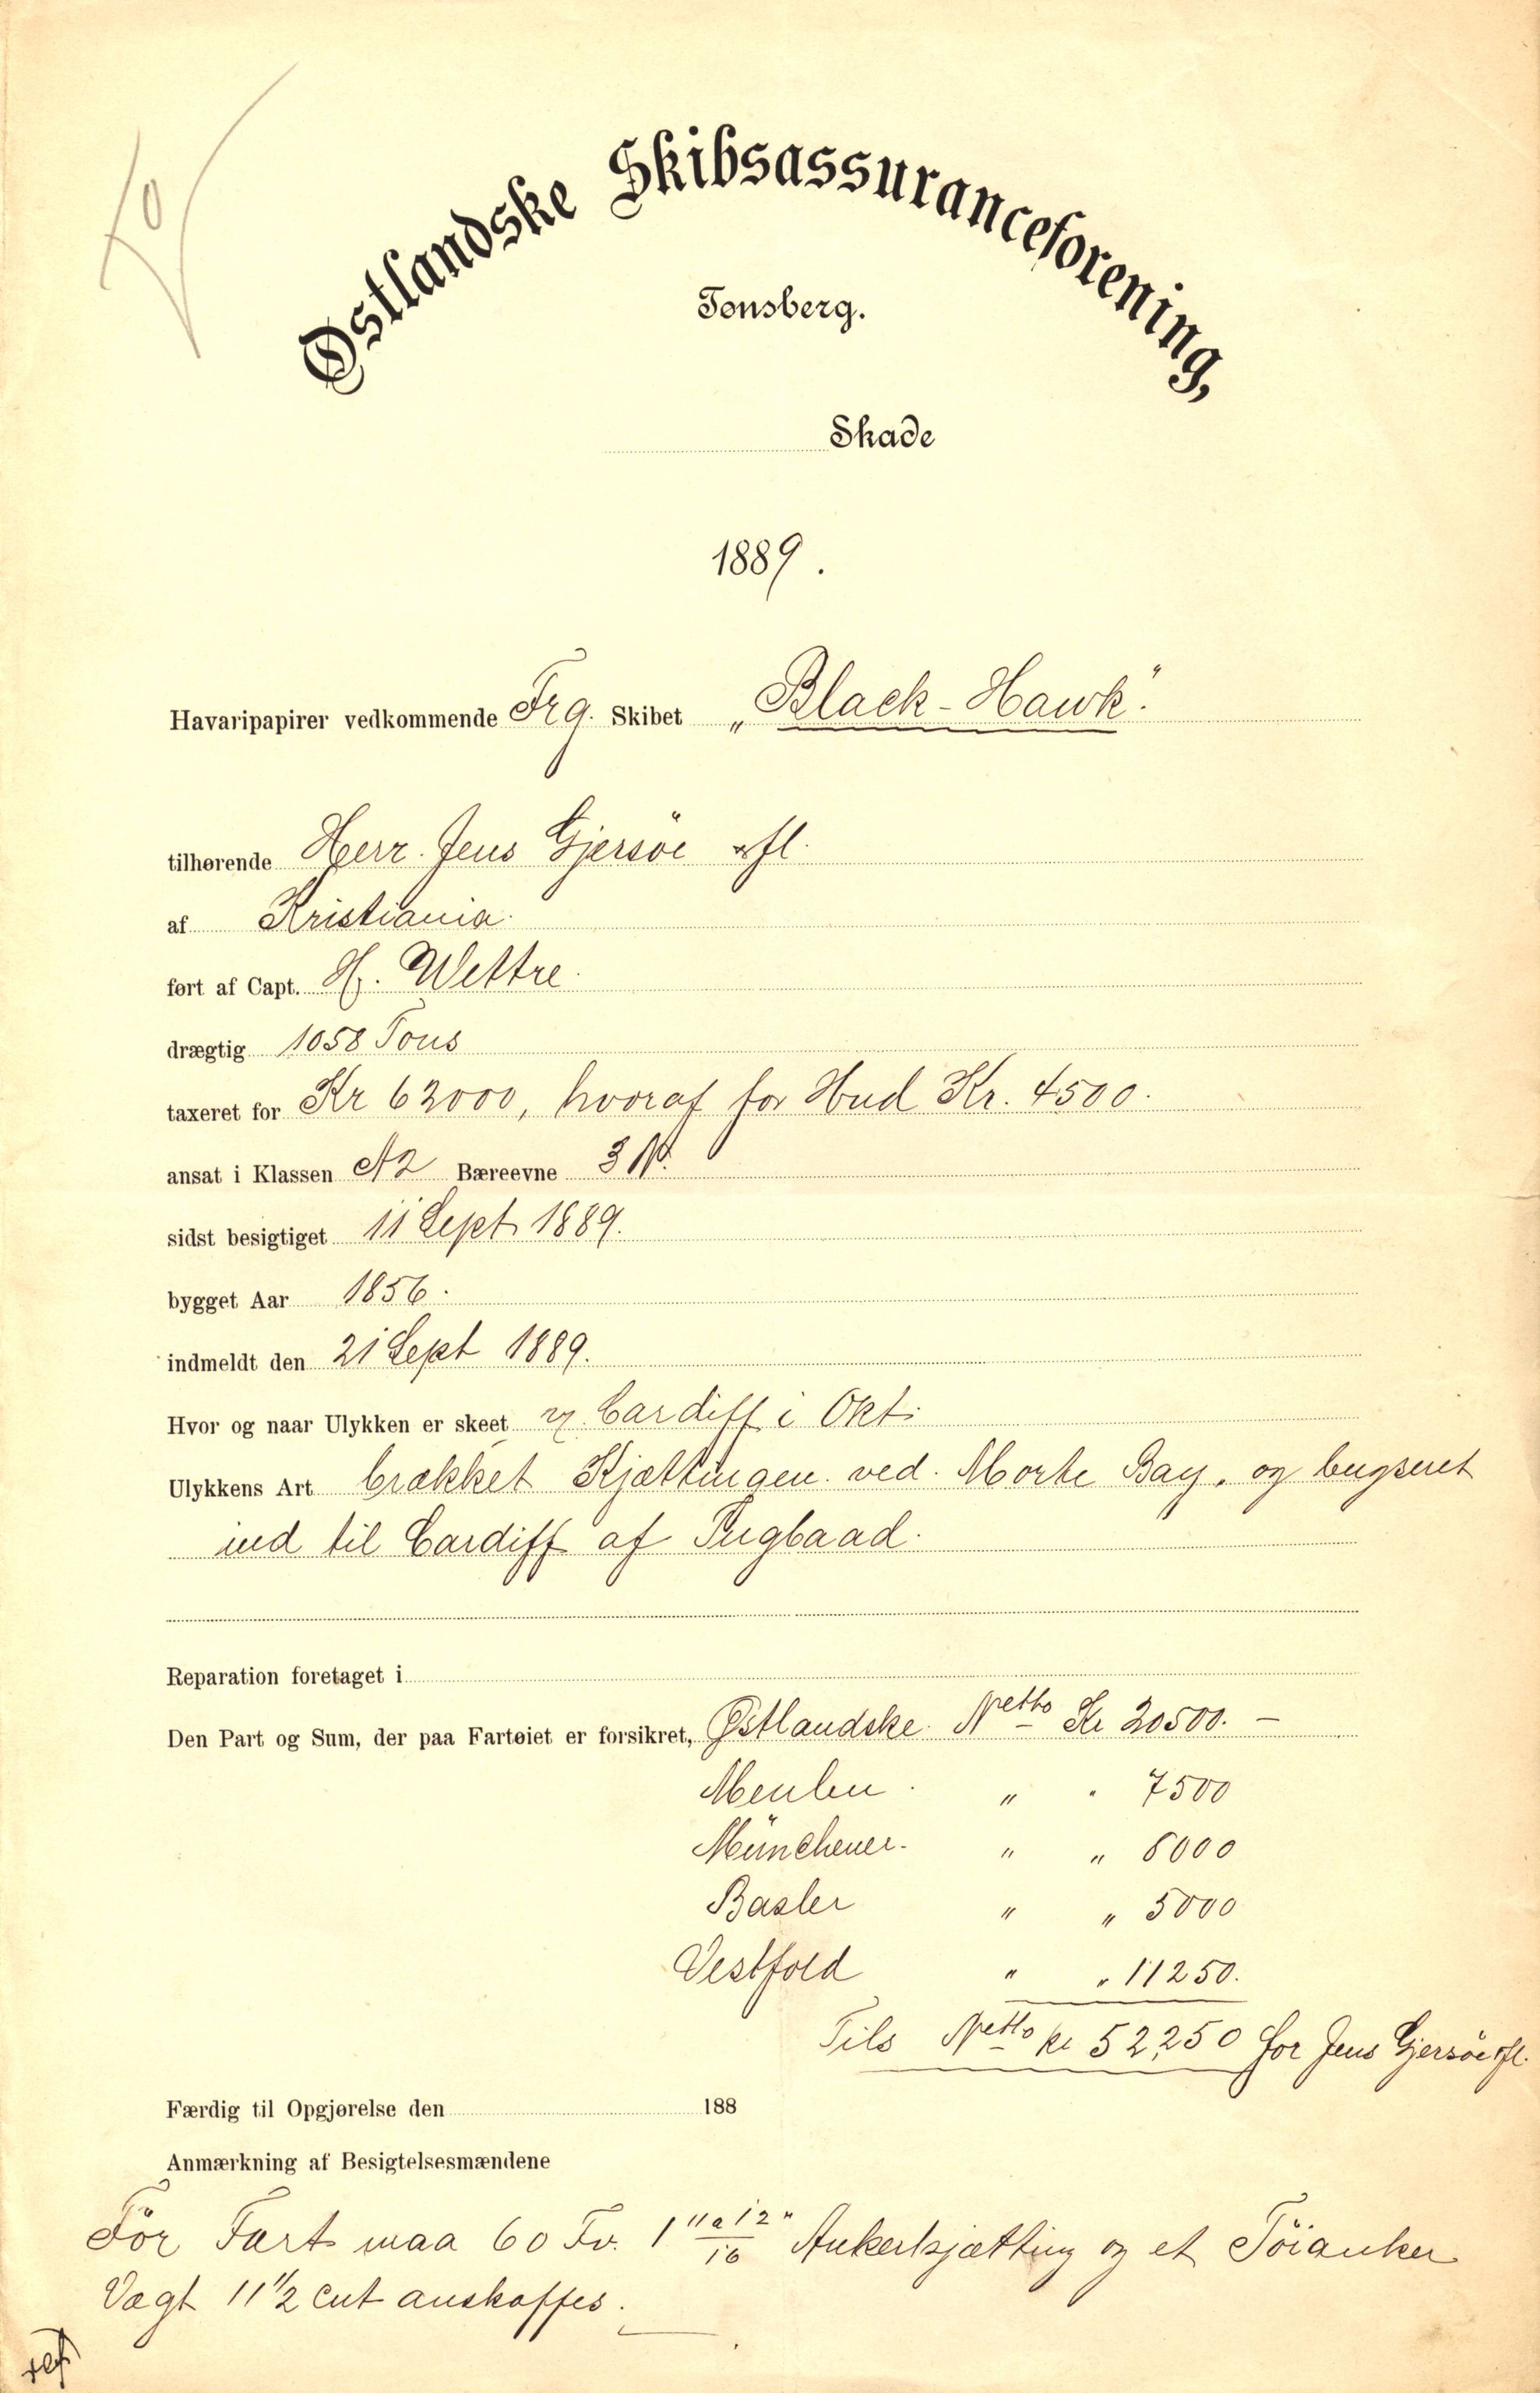 Østlandske Skibsassuranceforening,
Tønsberg.
Skade
1889.
Havaripapirer vedkommende Frg. Skibet „Black-Hawk".
tilhørende Herr. Jens Gjersöe ofl.
af Kristiania.
ført af Capt. H. Wettre.
drægtig 1058 Tons
taxeret for Kr 62000, hvoraf for Hud Kr. 4500.
ansat i Klassen A2 Bæreevne 3 N.
sidst besigtiget 11 Sept 1889.
bygget Aar 1856.
indmeldt den 21 Sept 1889.
Hvor og naar Ulykken er skeet v. Cardiff i Okt:
Ulykkens Art brækket Kjættingen ved. Morte Bay. og bugseret
ind til Cardiff af Tugbaad.
Reparation foretaget i
Den Part og Sum, der paa Fartøiet er forsikret, Østlandske. Netto Kr 20500. –
Meulen. " " 7500
Münchener. " " 8000
Basler " " 5000
Vestfold " " 11250.
Tils Netto kr 52,250 for Jens Gjersöe ofl.
Færdig til Opgjørelse den 188
Anmærkning af Besigtelsesmændene
För Fart maa 60 Fv. 1" a 12/16" Ankerkjætting og et Töianker
Vægt 11 1/2 cwt anskaffes.